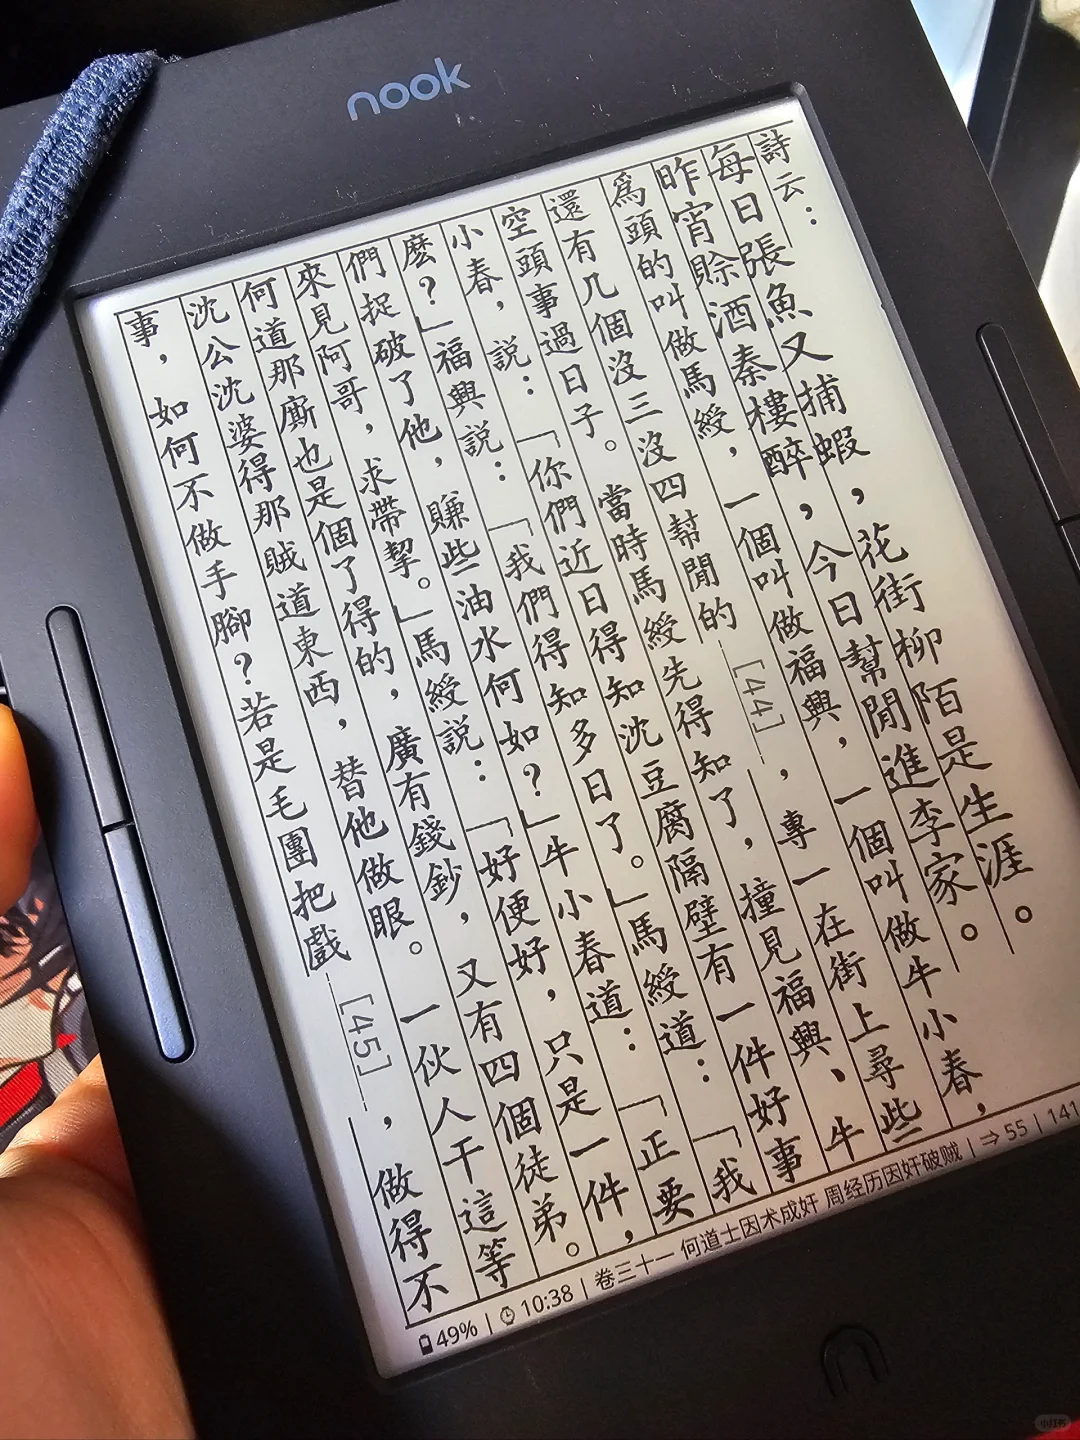 nook
詩云：
每日張魚又捕蝦，花街柳陌是生涯。
昨宵賒酒秦樓醉，今日幫閒進李家。
爲頭的叫做馬綬，一個叫做福興，一個叫做牛小春，
還有几個沒三沒四幫閒的[44]，專一在街上尋些
空頭事過日子。當時馬綬先得知了，撞見福興、牛
小春，説：「你們近日得知沈豆腐隔壁有一件好事
麽？」福興説：「我們得知多日了。」馬綬道：「我
們捉破了他，賺些油水何如？」牛小春道：「正要
來見阿哥，求帶挈。」馬綬説：「好便好，只是一件，
何道那廝也是個了得的，廣有錢鈔，又有四個徒弟。
沈公沈婆得那賊道東西，替他做眼。一伙人干這等
事，如何不做手腳？若是毛團把戲[45]，做得不
49% | 10:38 | 卷三十一 何道士因术成奸 周经历因奸破贼 | ⇒ 55 | 141
小红书